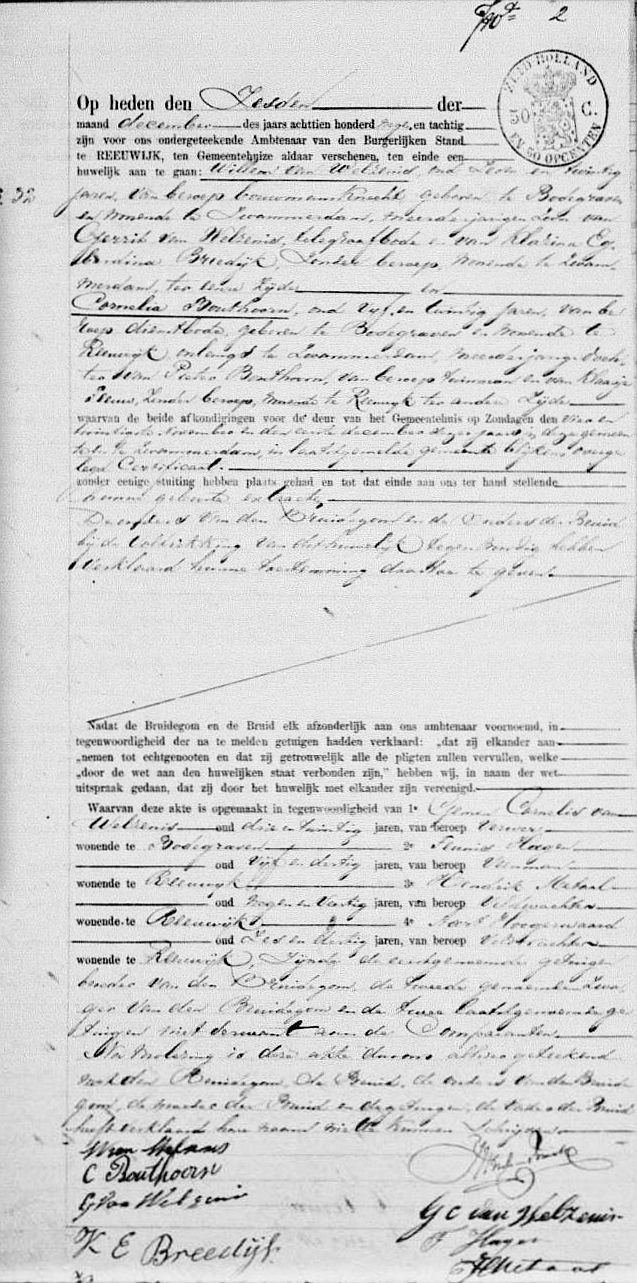 2
ZUID HOLLAND
50 C.
EN 50 OPCENTEN
Op heden den Zesden der
maand december des jaars achttien honderd negen en tachtig
zijn voor ons ondergeteekende Ambtenaar van den Burgerlijken Stand
te REEUWIJK, ten Gemeentehuize aldaar verschenen, ten einde een
huwelijk aan te gaan: Willem van Welzenis, oud Zeven en twintig
32
jaren, van beroep bouwmansknecht geboren te Bodegraven
en wonende te Zwammerdam, meerderjarigen Zoon van
Gerrit van Welzenis, telegraafbode en van Klazina
Breedijk, Zonder beroep, wonende te Zwam
merdam, ter eene zijde en
Cornelia Bouthoorn, oud vijf en twintig jaren, van be
roep dienstbode, geboren te Bodegraven en wonende te
Reeuwijk onlangs te Zwammerdam, meerderjarige doch
ter van Pieter Bouthoorn, van beroep en van Klaasje
Zonder beroep, wonende te Reeuwijk ter andere Zijde
waarvan de beide afkondigingen voor de deur van het Gemeentehuis op Zondagen den vier en
twintigste November en den eerste december dezes jaars in deze gemeen
te en te Zwammerdam, in laatstgemelde gemeente blijkens overge
legd Certificaat.
zonder eenige stuiting hebben plaats gehad en tot dat einde aan ons ter hand stellende
hunne geboorte extracten
De ouders van den Bruidegom en de ouders der Bruid
bij de voltrekking van dit huwelijk tegenwoordig hebben
verklaard hunne toestemming daartoe te geven.
Nadat de Bruidegom en de Bruid elk afzonderlijk aan ons ambtenaar voornoemd, in
tegenwoordigheid der na te melden getuigen hadden verklaard: „dat zij elkander aan-
„nemen tot echtgenooten en dat zij getrouwelijk alle de pligten zullen vervullen, welke
„door de wet aan den huwelijken staat verbonden zijn,” hebben wij, in naam der wet
uitspraak gedaan, dat zij door het huwelijk met elkander zijn vereenigd.
Waarvan deze akte is opgemaakt in tegenwoordigheid van 1e Cornelis van
Welzenis oud drie en twintig jaren, van beroep Verver
wonende te Bodegraven 2e Teunis Hagen
oud Vijf en dertig jaren, van beroep
wonende te Reeuwijk 3e Hendrik Metaal
oud Negen en Veertig jaren, van beroep Veldwachter
wonende te Reeuwijk 4e Hoogerwaard
oud Zes en dertig jaren, van beroep Veldwachter
wonende te Reeuwijk, Zijnde de eerstgenoemde getuigen
broeder van den Bruidegom, de tweede genoemde Zwa
ger van den Bruidegom en de twee laatstgenoemde ge
tuigen niet verwant aan de Comparanten.
Na voorlezing is deze akte door ons alhier geteekend
met den Bruidegom, de Bruid, de ouders van den Bruide
gom, de moeder der Bruid en de getuigen, de vader der Bruid
heeft verklaard haar naam niet te kunnen Schrijven
C Bouthoorn
G van Welzenis
G C van Welzenis
T Hagen
K E Breedijk
H Metaal